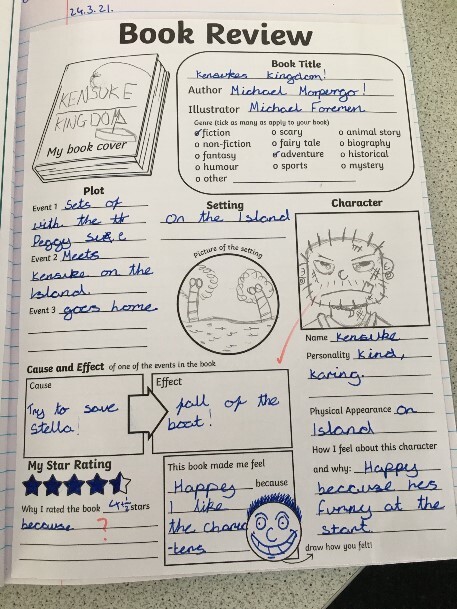 24.3.21.
Book Review
KENSUKE
KINGDOM
My book cover
Book Title
Kensukes Kingdom!
Author Michael Morpurgo!
Illustrator Michael Foremen
Genre (tick as many as apply to your book)
fiction
scary
animal story
non-fiction
fairy tale
biography
fantasy
adventure
historical
humour
sports
mystery
other
Plot
Event 1 Sets of
with the
Peggy Sue
Event 2 Meets
Kensuke on the
Island.
Event 3 goes home
Setting
on the Island
Picture of the setting
Character
Name Kensuke
Personality Kind,
Karing.
Physical Appearance on
Island
How I feel about this character
and why: Happy
because hes
funny at the
start.
Cause and Effect of one of the events in the book
Cause
Try to save
Stella!
Effect
fall of the
boat!
My Star Rating
Why I rated the book 4+½ stars
because ?
This book made me feel
Happy because
I like
the charac
-ters
draw how you felt!